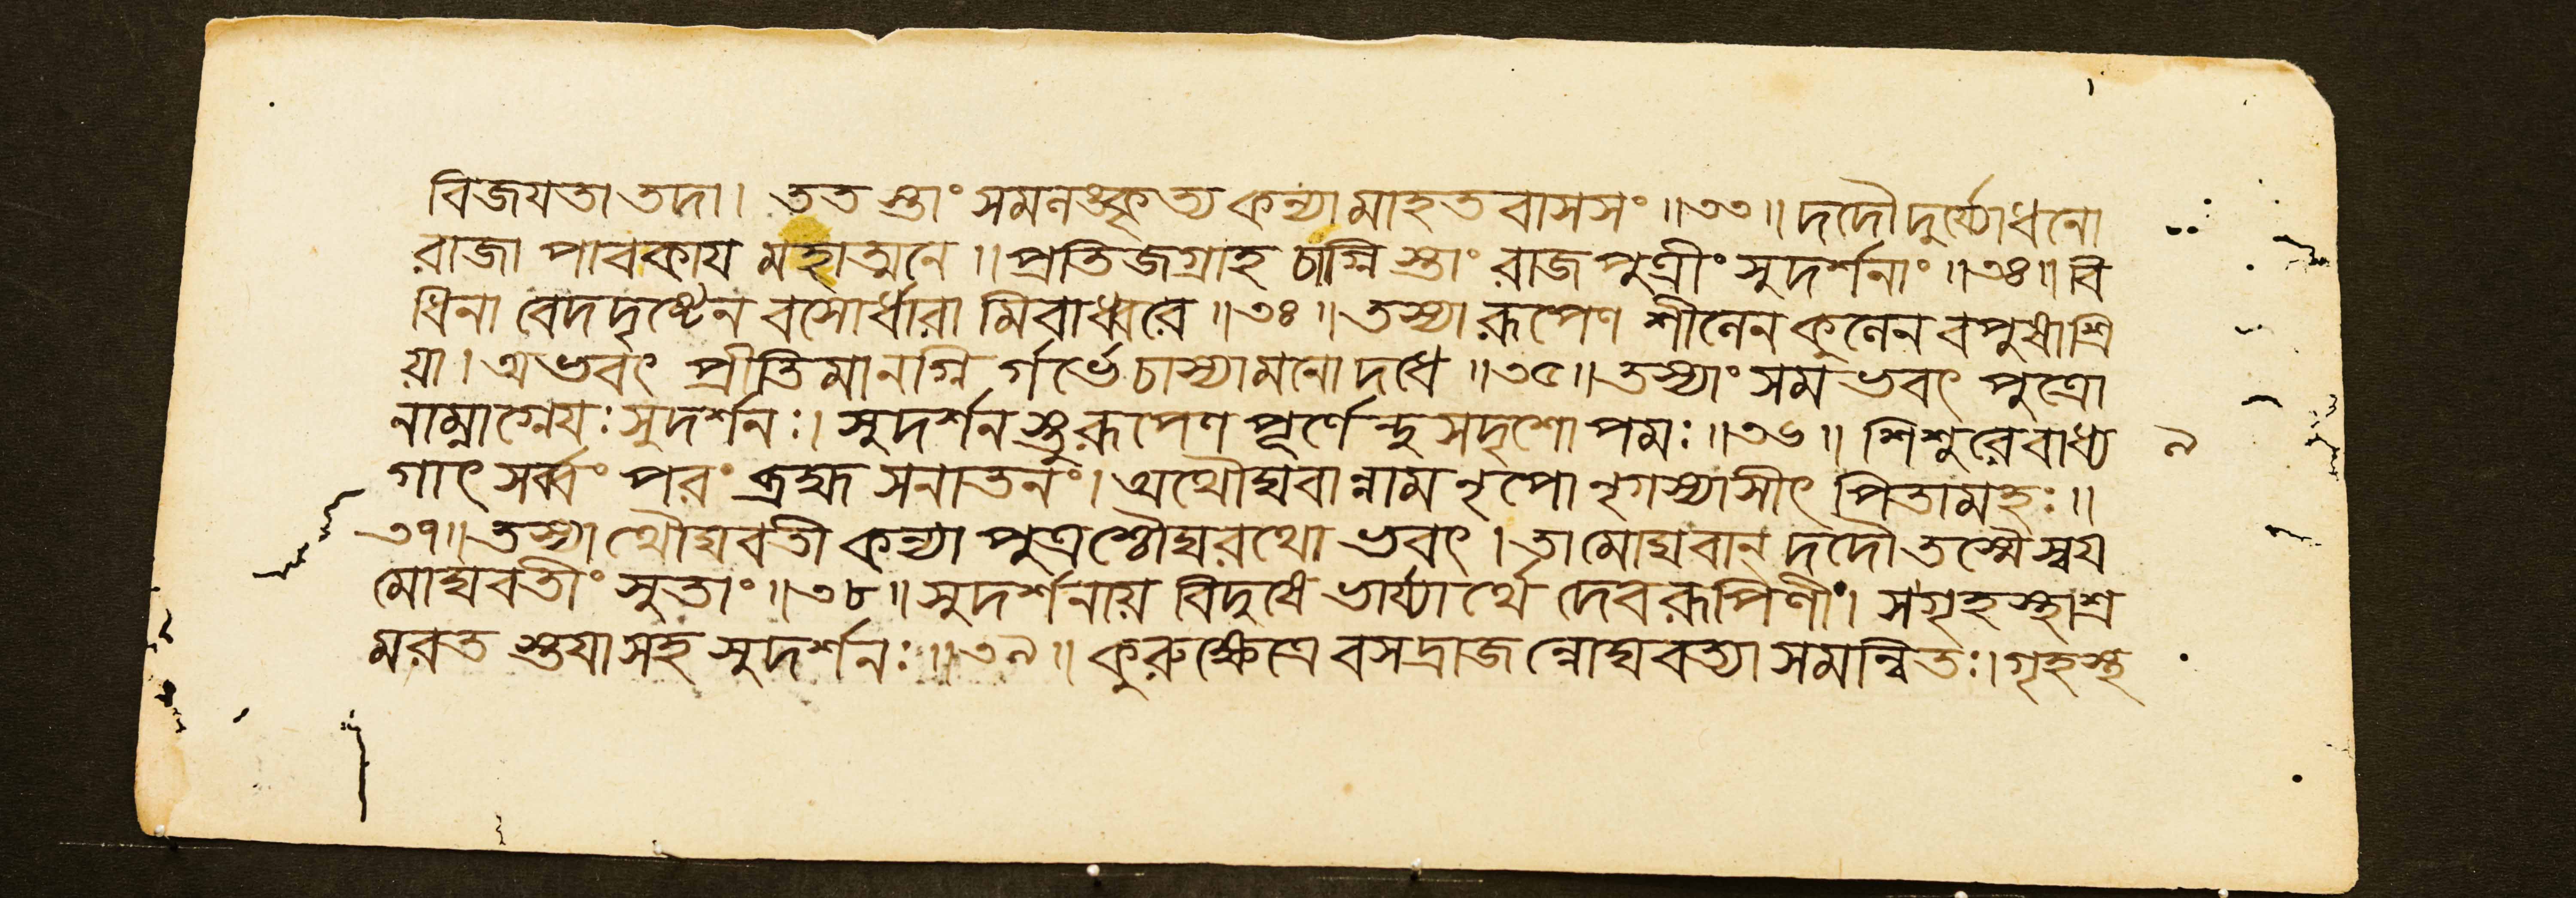 বিজযতা তদা। তত স্তাং সমলঙ্কৃত্য কন্যা মাহত বাসসং॥৩৩॥ দদৌ দুর্য্যোধনো
রাজা পাবকায মহাত্মনে॥ প্রতিজগ্রাহ চাগ্নি স্তাং রাজ পুত্রীং সুদর্শনাং॥৩৪॥ বি
ধিনা বেদদৃষ্টেন বসোর্ধারা মিবাধ্বরে॥৩৪॥ তস্যা রূপেণ শীলেন কুলেন বপুষা শ্রি
য়া। অভবৎ প্রীতিমানগ্নি র্গর্ভে চাস্যা মনো দধে॥৩৫॥ তস্যাং সম ভবৎ পুত্রো
নাম্নাগ্নেযঃ সুদর্শনঃ। সুদর্শন স্তু রূপেণ পূর্ণেন্দু সদৃশো পমঃ॥৩৬॥ শিশুরেবাধ্য ৯
গাৎ সর্ব্বং পরং ব্রহ্ম সনাতনং। অথৌঘবান্নাম নৃপো নৃগস্যাসীৎ পিতামহঃ॥
৩৭॥ তস্যা থৌঘবতী কন্যা পুত্রশ্চৌঘরথো ভবৎ। তামোঘবান্ দদৌ তস্মৈ স্বয
মোঘবতীং সুতাং॥৩৮॥ সুদর্শনায় বিদুষে ভার্য্যার্থে দেবরূপিণীং। স গৃহস্থাশ্র
মরত স্তযা সহ সুদর্শনঃ॥৩৯॥ কুরুক্ষেত্রে বসদ্রাজ ন্নোঘবত্যা সমন্বিতঃ। গৃহস্থ